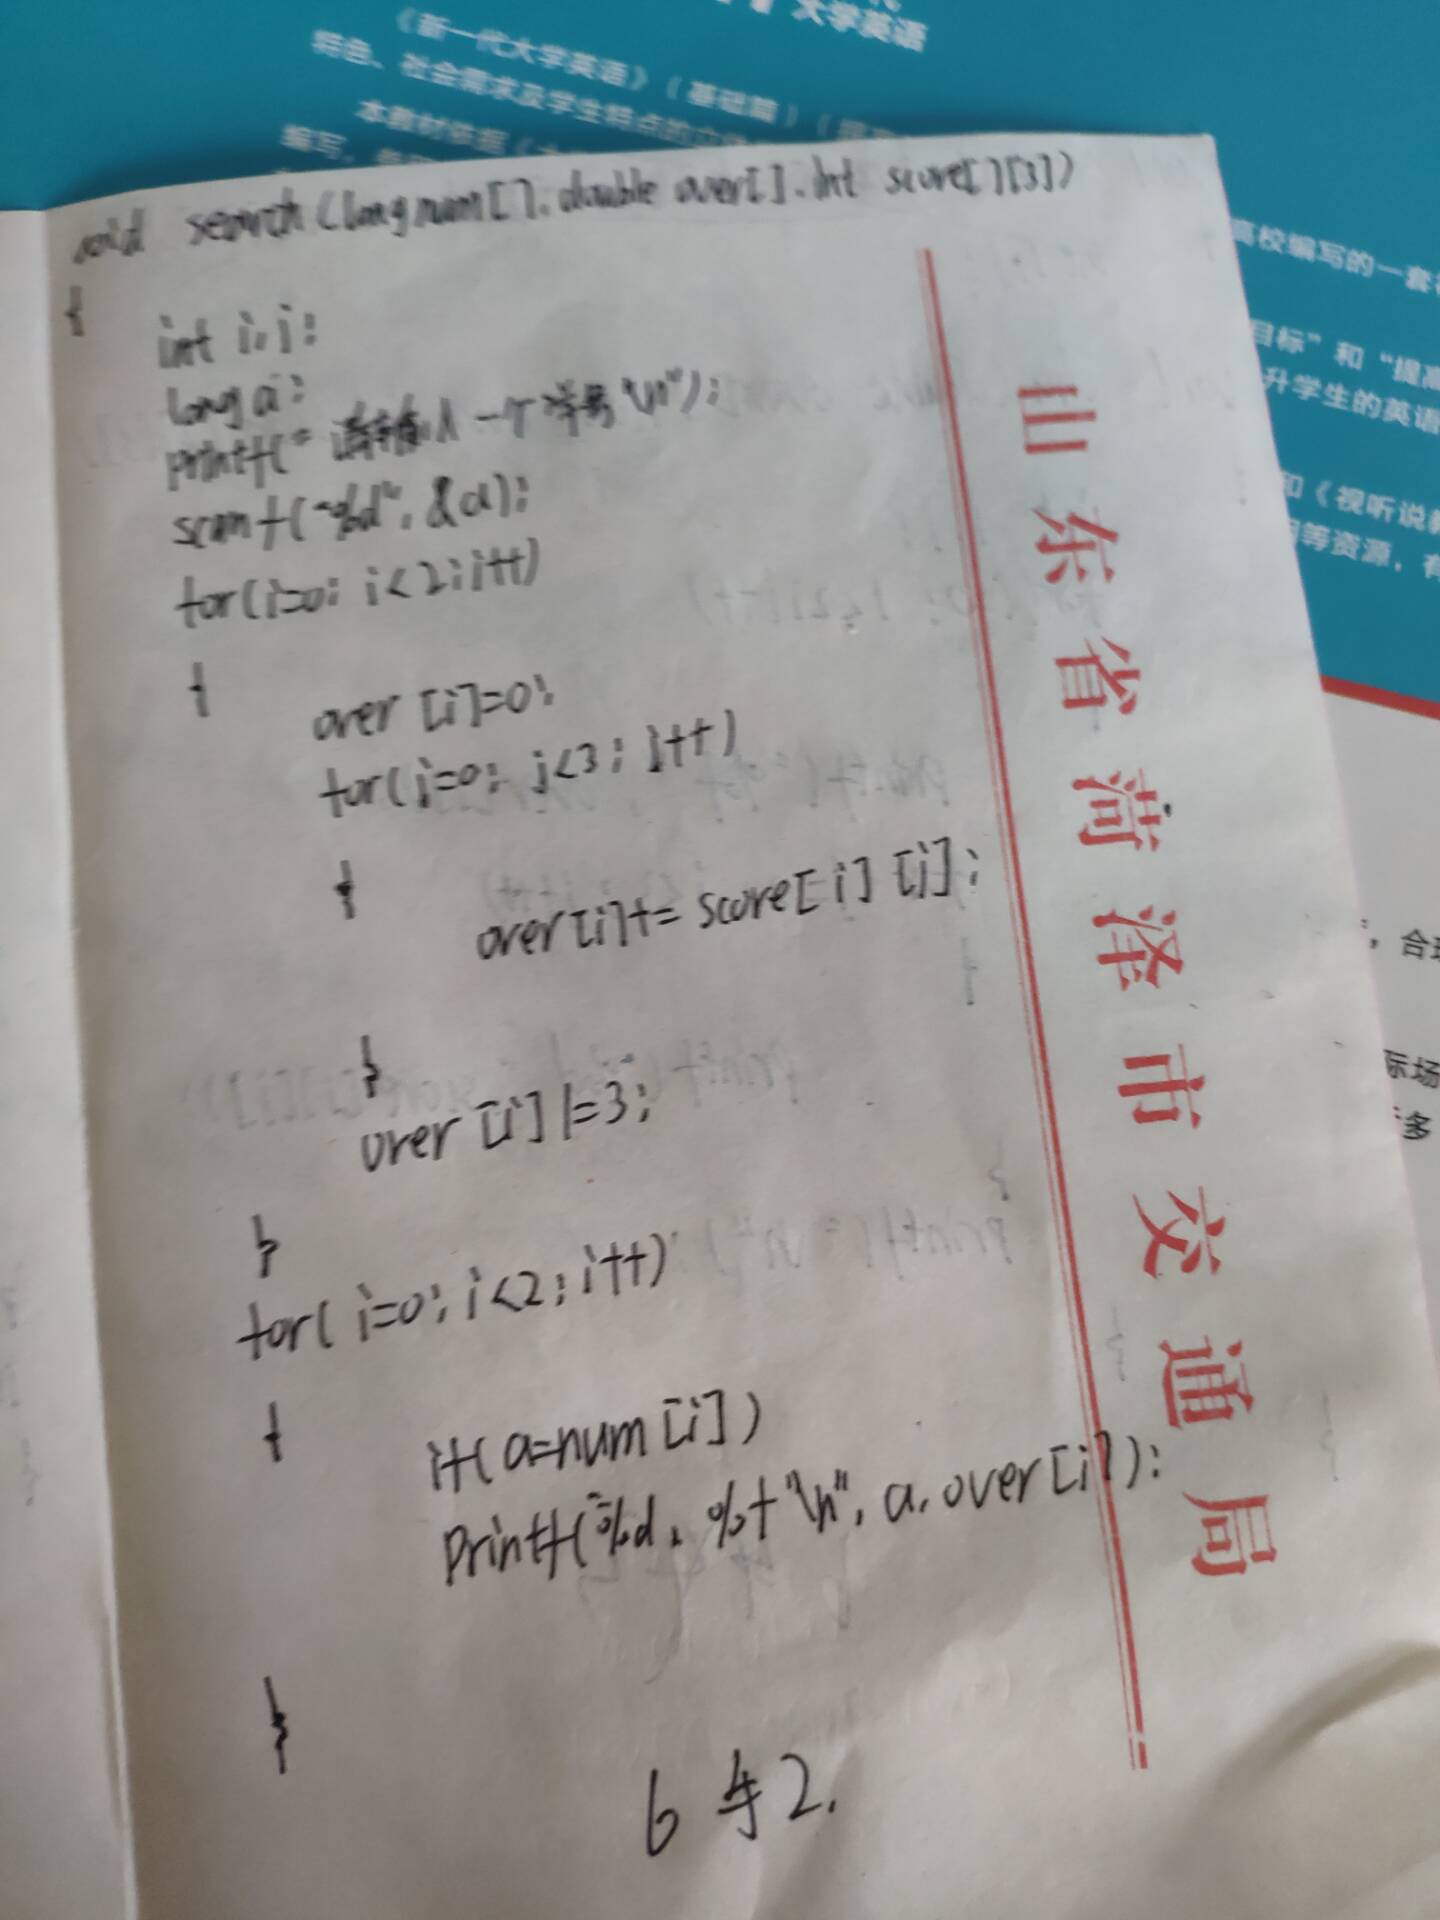 大学英语
《新一代大学英语》（基础篇）
特色、社会需求及学生特点的
本教材依据
编写
void search(long num[], double over[], int score[][3])
{
int i,j;
long a;
printf("请输入一个学号\n");
scanf("%d",&a);
for(i=0; i<2; i++)
{
over[i]=0;
for(j=0; j<3; j++)
{
over[i]+=score[i][j];
}
over[i]/=3;
}
for(i=0; i<2; i++)
{
if(a=num[i])
printf("%d, %f"\n", a, over[i]);
}
6 与 2.
山东省菏泽市交通局
高校编写的一套
目标”和“提高
升学生的英语
和《视听说教
等资源，有
，合理
际场
多